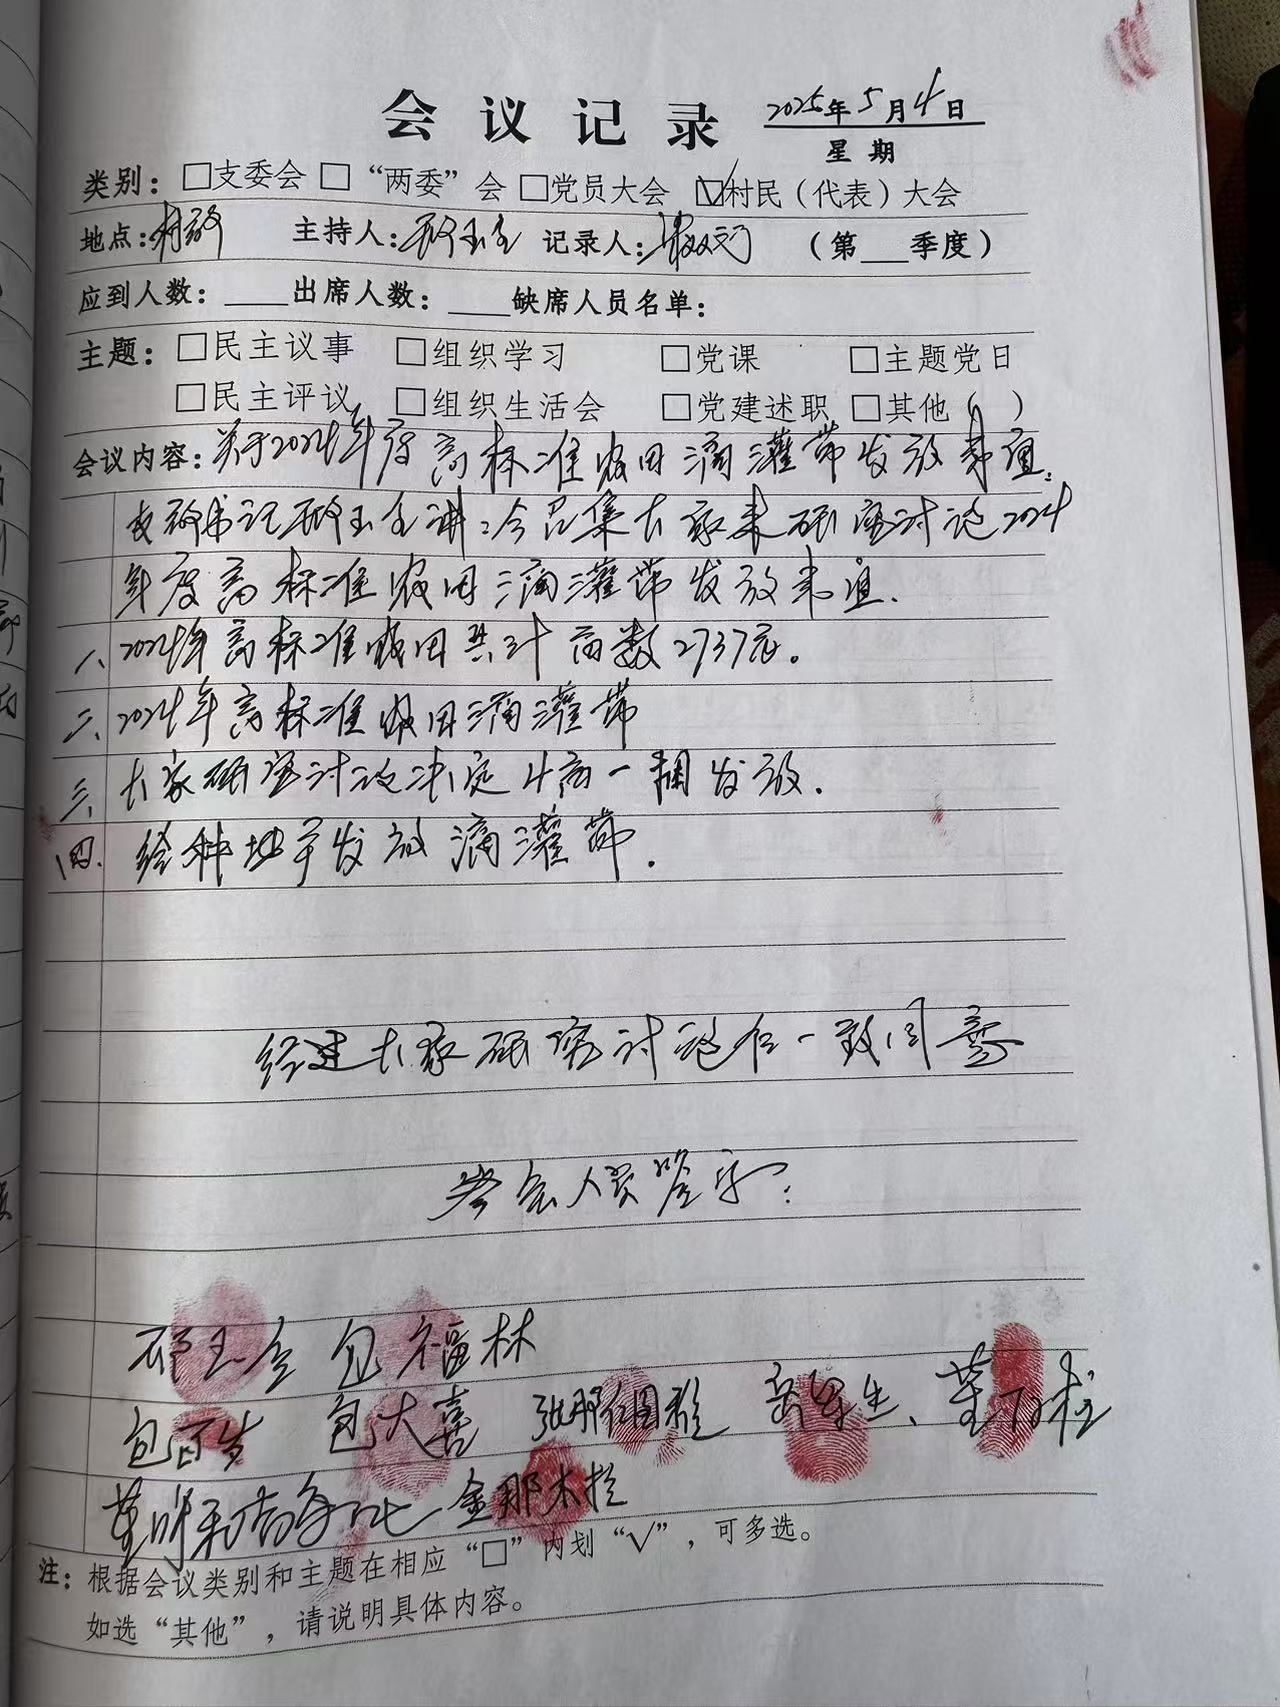 会议记录 2025年5月4日
星期
类别：□支委会 □“两委”会 □党员大会 ☑村民（代表）大会
地点：村部 主持人：邴玉金 记录人： （第___季度）
应到人数：____出席人数：____缺席人员名单：
主题：□民主议事 □组织学习 □党课 □主题党日
□民主评议 □组织生活会 □党建述职 □其他（ ）
会议内容：关于2024年度高标准农田滴灌带发放事宜.
支部书记邴玉金讲：今召集大家来研究讨论2024
年度高标准农田滴灌带发放事宜.
一、2024年高标准农田共计亩数2737亩。
二、2024年高标准农田滴灌带
三、大家研究讨论决定4亩一捆发放.
四. 给种地户发放滴灌带.
经过大家研究讨论后一致同意
参会人员签字：
邴玉金 包福林
包百岁 包大喜 张那仁图雅 岳军生、董百柱
董明 金那木拉
注：根据会议类别和主题在相应“□”内划“√”，可多选。
如选“其他”，请说明具体内容。